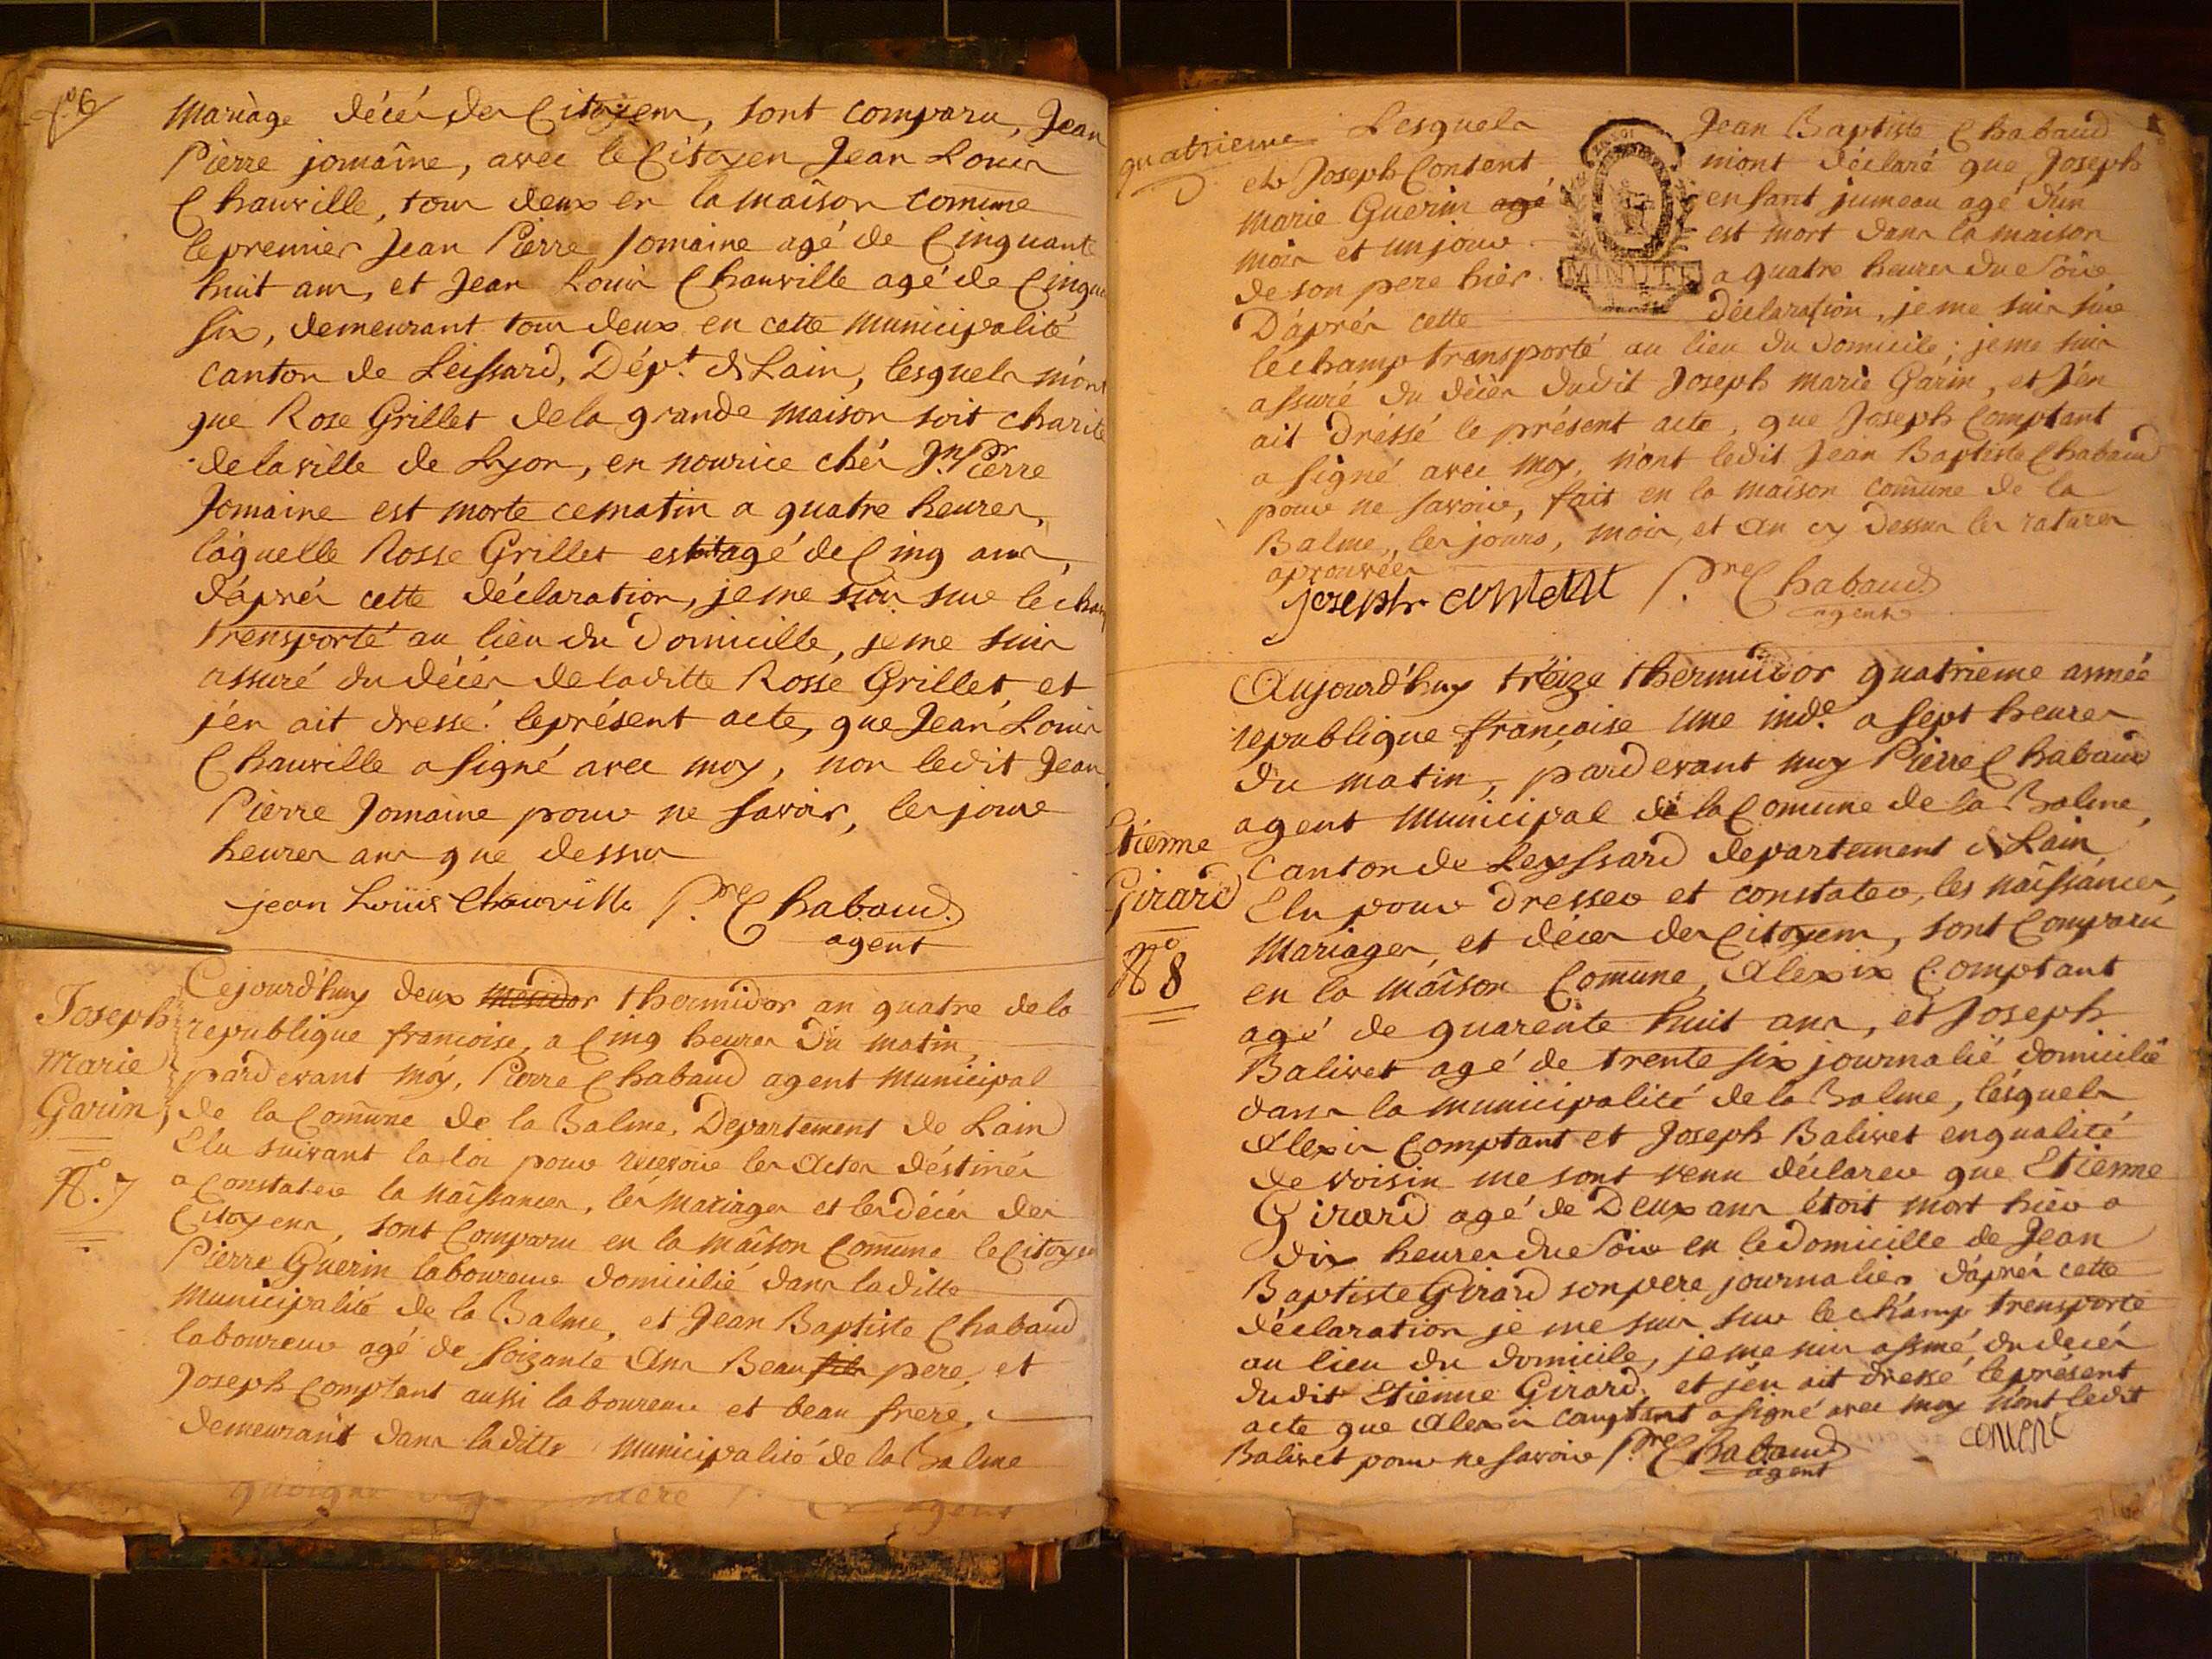 fº 6
Mariage décès des Citoyens, sont comparu, Jean
Pierre jomaine, avec le Citoyen Jean Louis
Chauville, tous deux en la maison comune
le premier Jean Pierre Jomaine agé de Cinquante
huit ans, et Jean Louis Chauville agé de Cinqu
six, demeurant tous deux en cette municipalité
canton de Leissard, Dépt. de Lain, lesquels m'ont
que Rose Grillet de la grande maison soit charité
de la ville de Lyon, en nourice chés Jn. Pierre
Jomaine est morte ce matin a quatre heures,
laquelle Rosse Grillet est agé de Cinq ans,
d'après cette déclaration, je me suis sur le cham
transporté au lieu du domicille, je me suis
assuré du décès de laditte Rosse Grillet, et
j'en ait dressé le présent acte, que Jean Louis
Chauville a signé avec moy, non ledit Jean
Pierre Jomaine pour ne savoir, les jour
heures ans que dessus
jean Louis Chauville Pre Chabaud
agent
Joseph
Marie
Garin,
Nº. 7
Cejourd'huy deux messidor thermidor an quatre de la
republique francoise, a Cinq heures du matin,
pardevant moy, Pierre Chabaud agent municipal
de la Comune de la Balme, Departement de Lain
Elu suivant la loi pour recevoir les Actes déstinés
a Constater la naissances, lés mariages et les décés des
Citoyens, sont Comparu en la maison Comune le Citoyen
Pierre Guerin laboureur domicilié dans laditte
municipalité de la Balme, et Jean Baptiste Chabaud
laboureur agé de soizante Ans Beau fils pere, et
Joseph Comptant aussi laboureur et beau frere,
demeurant dans laditte municipalité de la Balme
quatrieme
Lesquels Jean Baptiste Chabaud
et Joseph Content mont déclaré que Joseph
marie Guerin agé enfant jumeau agé d'un
mois et un jour est mort dans la maison
de son pere hier a quatre heures du soir
MINUTE
D'après cette déclaration, je me suis sur
le champ transporté au lieu du domicile; je me suis
assuré du décès dudit Joseph marie Garin, et j'en
ait dréssé le présent acte, que Joseph Comptant
a signé avec moy, n'ont ledit Jean Baptiste Chabaud
pour ne savoir, fait en la maison comune de la
Balme, les jours, mois, et an cy dessus les ratures
aprouvées
joseph content Pre Chabaud
agent
Etienne
Girard
Nº 8
Aujourd'huy treize thermidor quatrieme année
republique francoise une inde. a sept heures
du matin, pardevant moy Pierre Chabaud
agent municipal de la Comune de la Balme,
Canton de Leyssard departement de Lain
Elu pour dresser et constater, les naissances,
Mariages, et décès des Citoyens, sont Comparu
en la maison Comune, Alexix Comptant
agé de quarente huit ans, et Joseph
Balivet agé de trente six journalié domicilié
dans la municipalité de la Balme, lésquels
Alexis Comptant et Joseph Balivet en qualité
de voisin me sont venu déclarer que Etienne
Girard agé de Deux ans étoit mort hier a
dix heures du soir en le domicille de Jean
Baptiste Girard son pere journalier d'après cette
déclaration je me suis sur le champ transporté
au lieu du domicile, je me suis assuré du decés
dudit Etienne Girard, et j'en ait dressé le présent
acte que Alexis Comptant a signé avec moy n'ont ledit
Balivet pour ne savoir Pre Chabaud contenc
agent